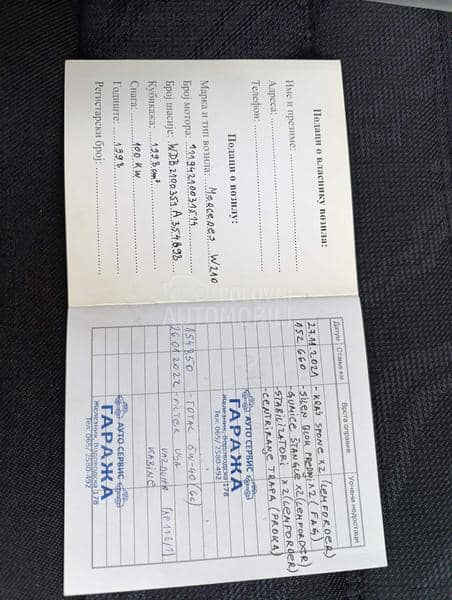 Подаци о власнику возила:
Име и презиме:
Адреса:
Телефон:
Подаци о возилу:
Марка и тип возила: Mercedes W210
Број мотора: 11194210031514
Број шасије: WDB2100351A354698
Кубикажа: 1998cm³
Снага: 100 KW
Годиште: 1998
Регистарски број:
Датум Стање км Врста оправке: Уочени недостаци
27.11.2021 - KRAJ SPONE X2 (LEMFORDER)
152 660 - SILEN BLOK PREDNJI X2 (FAG)
- GUMICE ŠTANGLE X2 (LEMFORDER)
- STABILIZATORI X2 (LEMFORDER)
- CENTRIRANJE TRAPA (PROKA)
АУТО СЕРВИС
ГАРАЖА
Железник, 17В
Тел: 065/ 2580-492
154950 - TOTAL 6W-40 (6L)
26.01.2022 - FILTER ULJA
VAZDUHA (AP 113/1)
KABINE
АУТО СЕРВИС
ГАРАЖА
Железник, 17В
Тел: 065/ 2580-492